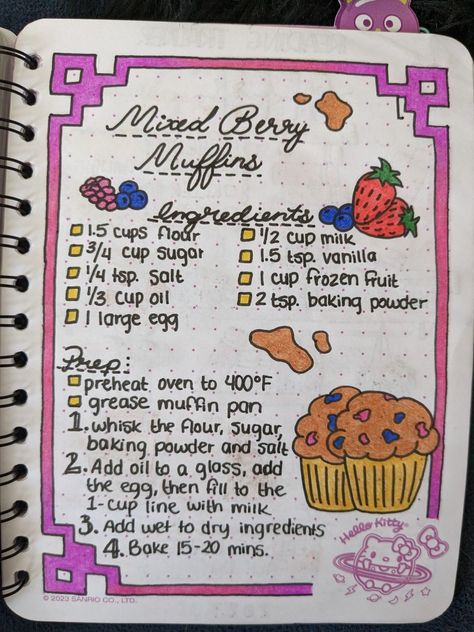 Mixed Berry
Muffins
Ingredients
1.5 cups flour
3/4 cup sugar
1/4 tsp. salt
1/3 cup oil
1 large egg
1/2 cup milk
1.5 tsp. vanilla
1 cup frozen fruit
2 tsp. baking powder
Prep:
preheat oven to 400°F
grease muffin pan
1. whisk the flour, sugar,
baking powder and salt
2. Add oil to a glass, add
the egg, then fill to the
1-cup line with milk
3. Add wet to dry ingredients
4. Bake 15-20 mins.
Hello Kitty
© 2023 SANRIO CO., LTD.